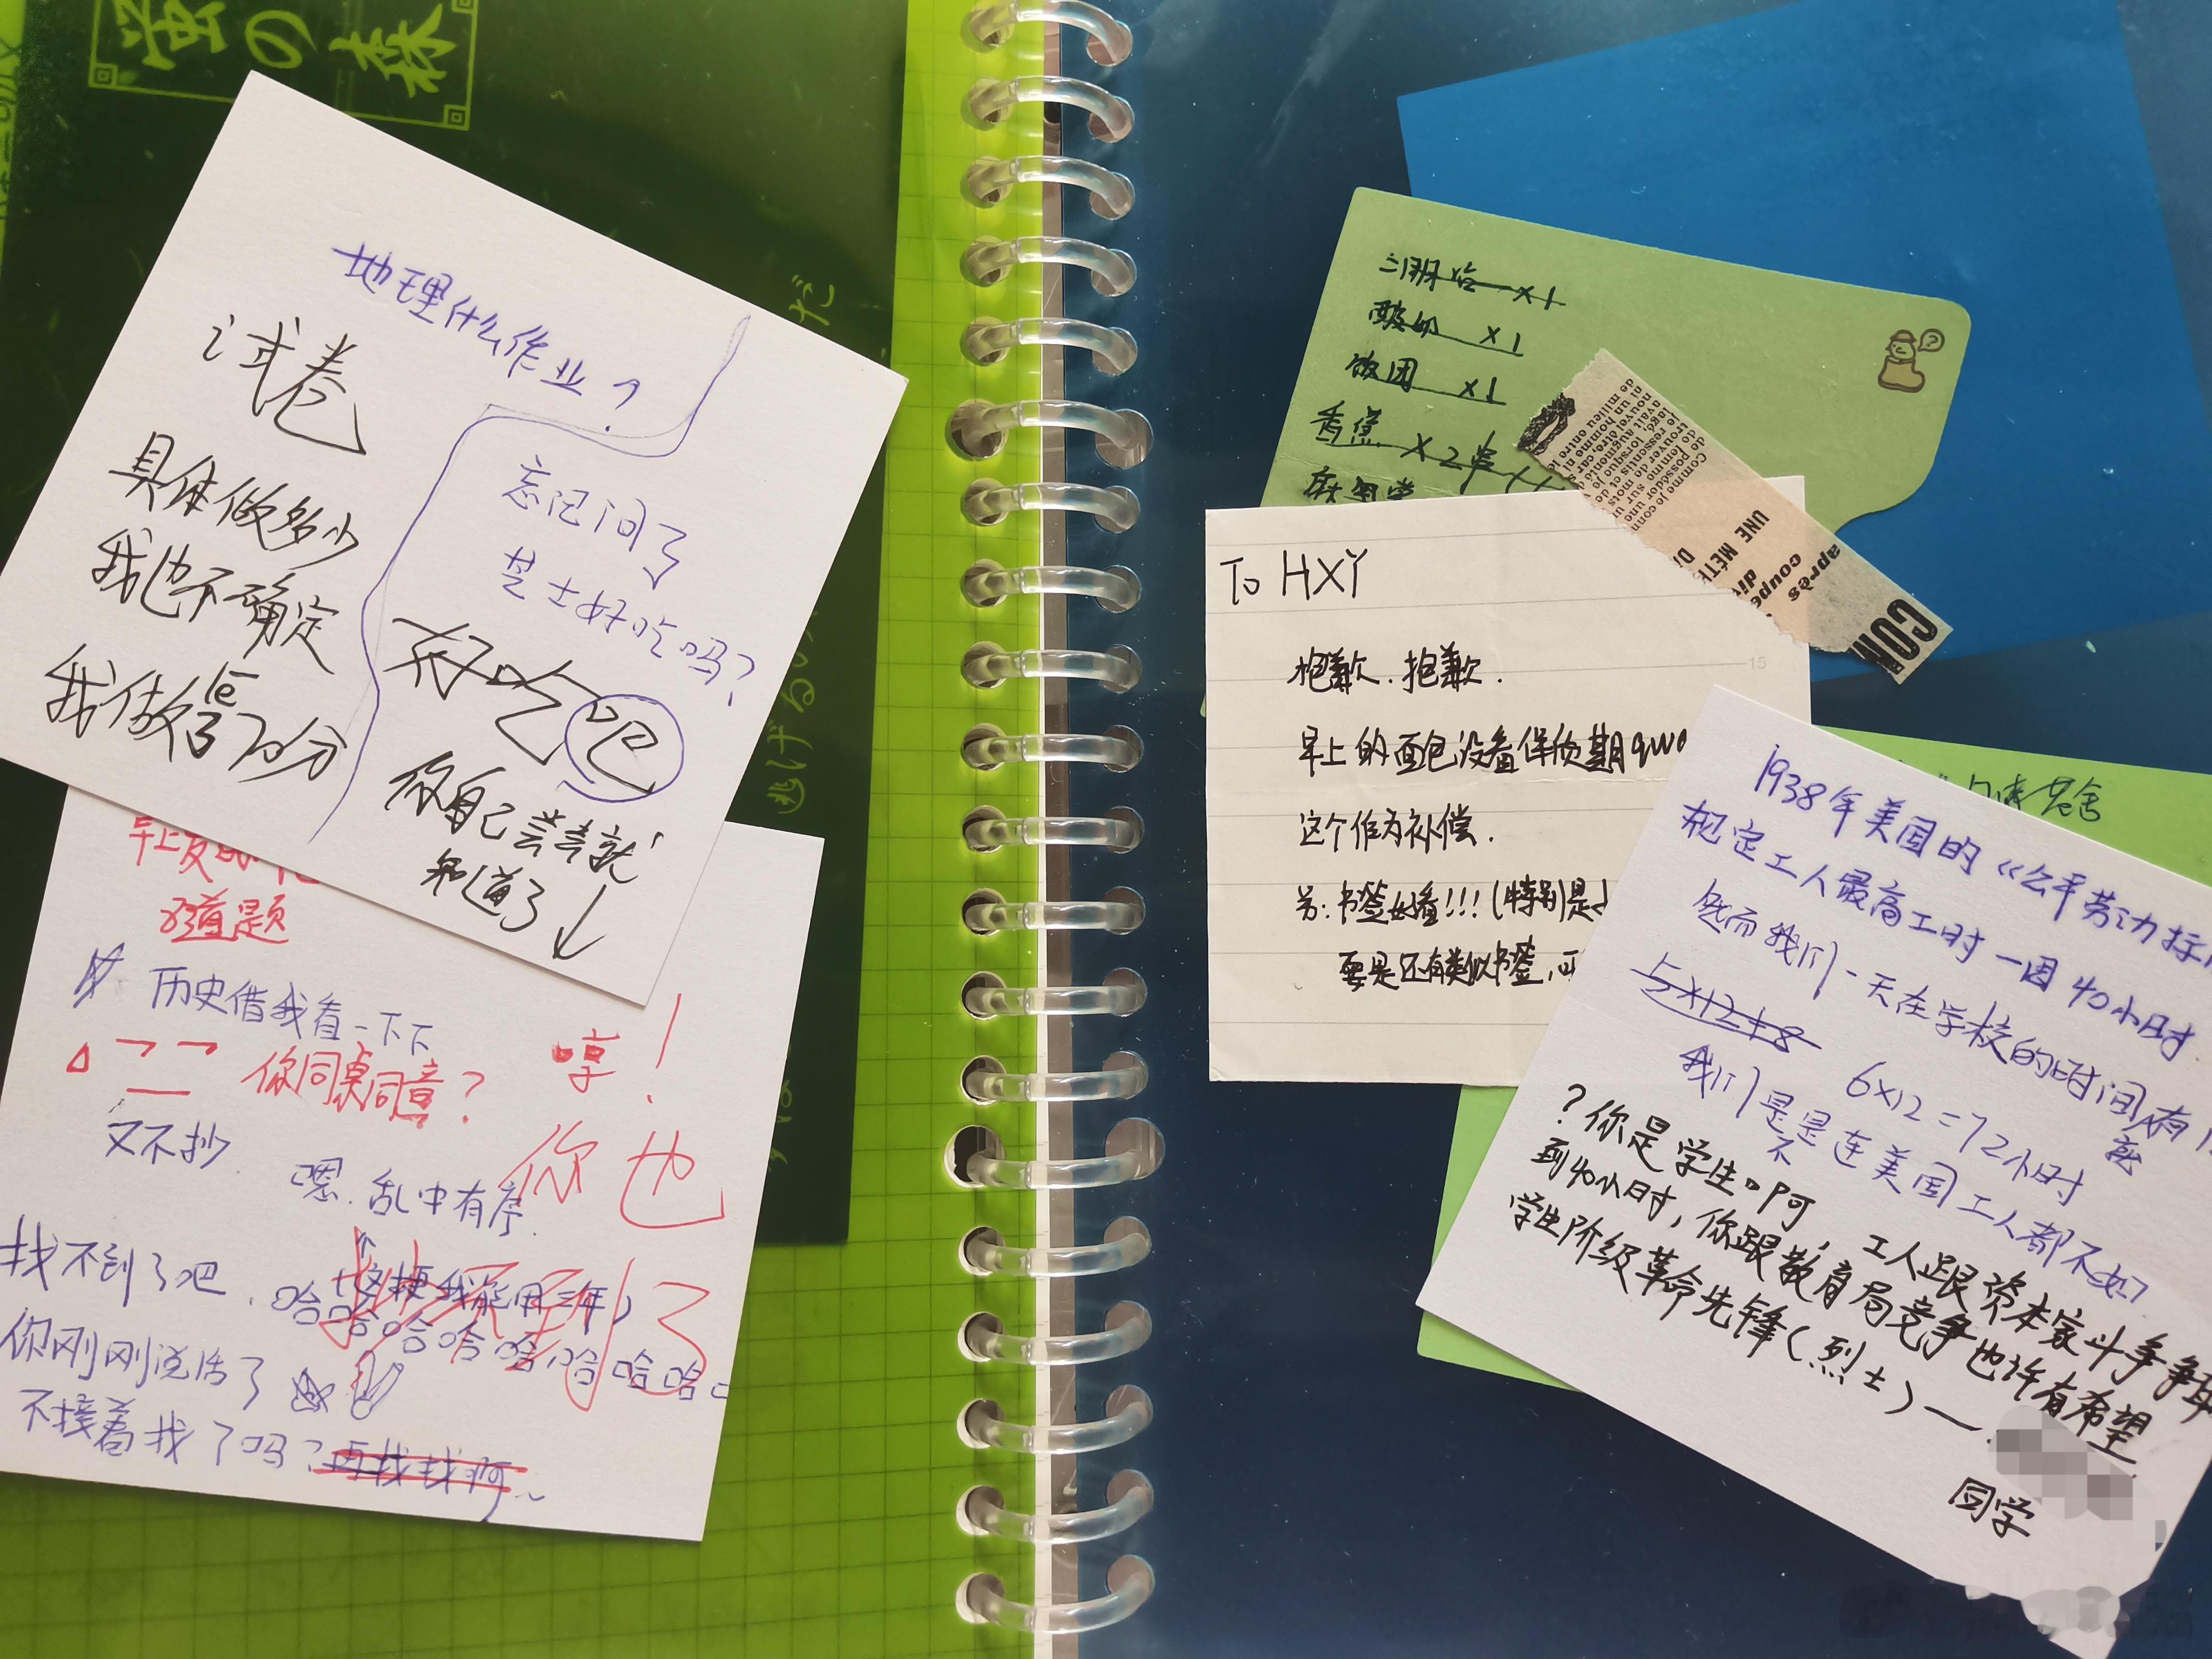 蛍の森
地理什么作业?
试卷
具体做多少
我也不确定
我做了70分
忘记问了
芝士好吃吗?
好吃吧
你自己尝尝就
知道了
道题
历史借我看一下下
你同桌同意?
哼!
又不抄
嗯.乱中有序.
你也
找不到了吧.
(这梗我能用三年)
哈哈哈哈哈哈哈哈
你刚刚说话了
不接着找了吗?再找找啊~
三明治 x1
酸奶 x1
饭团 x1
香蕉 x2串
To HXY
抱歉.抱歉.
早上的面包没看保质期qwq
这个作为补偿.
另:书签好看!!!(特别是
要是还有类似书签,可
15
UNE MÉT
après
coupe
COM
1938年美国的《公平劳动标
规定工人最高工时一周40小时.
然而我们一天在学校的时间有1
5x12+8
6x12=72小时
我们是不是连美国工人都不如?
?你是学生啊,工人跟资本家斗争争取
到40小时,你跟教育局竞争也许有希望
学生阶级革命先锋(烈士)—.
同学